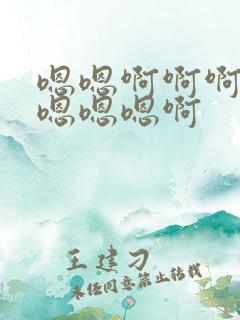 嗯嗯啊啊啊
嗯嗯嗯啊
王建刁
未经同意禁止转载